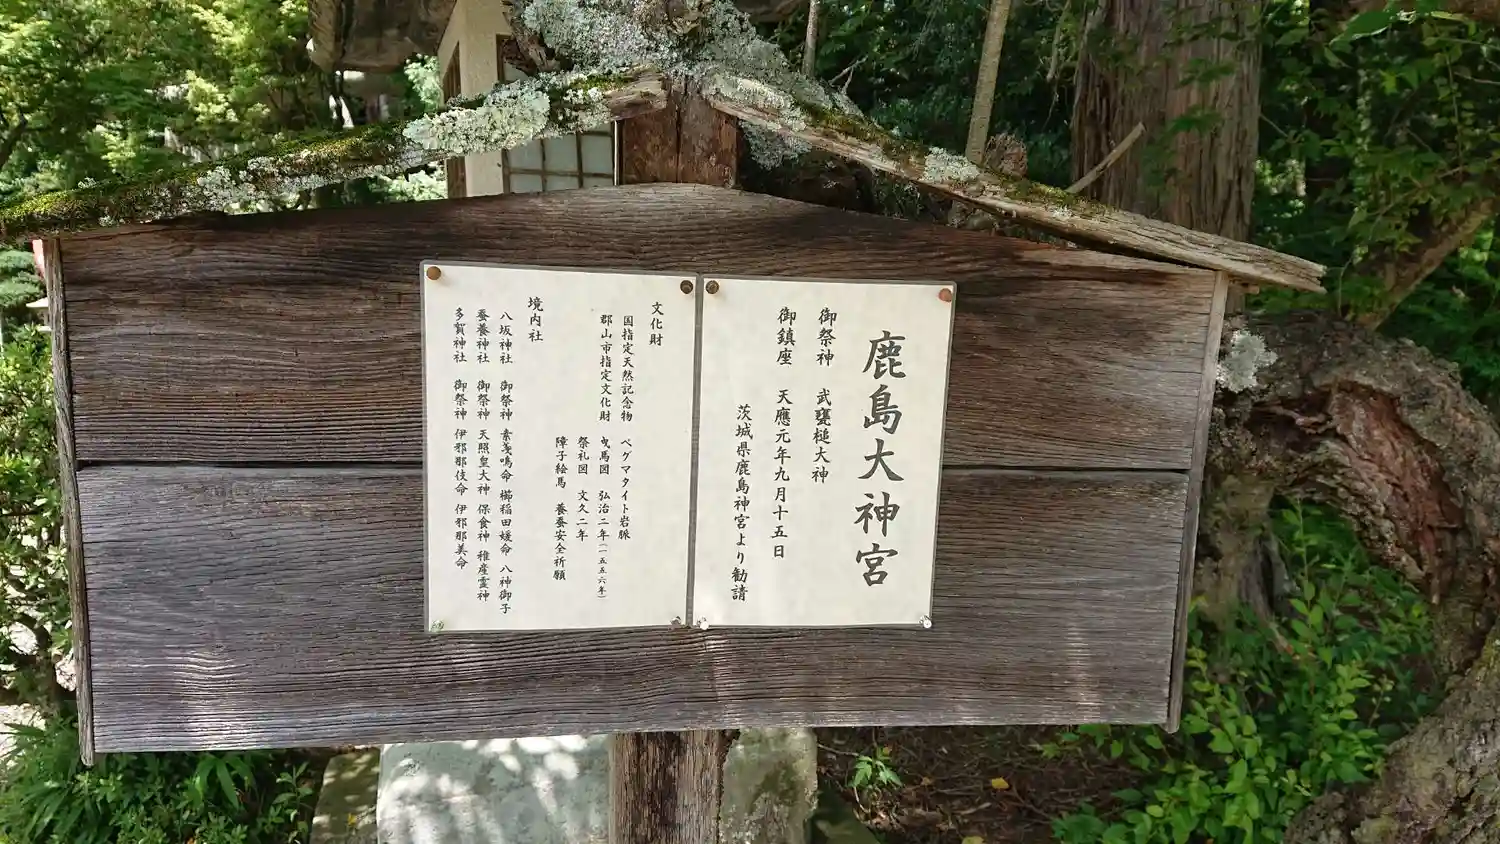 鹿島大神宮
御祭神 武甕槌大神
御鎮座 天應元年九月十五日
茨城県鹿島神宮より勧請
文化財
国指定天然記念物 ペグマタイト岩脈
郡山市指定文化財 曳馬図 弘治二年(一五五六年)
祭礼図 文久二年
障子絵馬 養蚕安全祈願
境内社
八坂神社 御祭神 素戔嗚命 櫛稲田媛命 八神御子
蚕養神社 御祭神 天照皇大神 保食神 稚産霊神
多賀神社 御祭神 伊邪那伎命 伊邪那美命